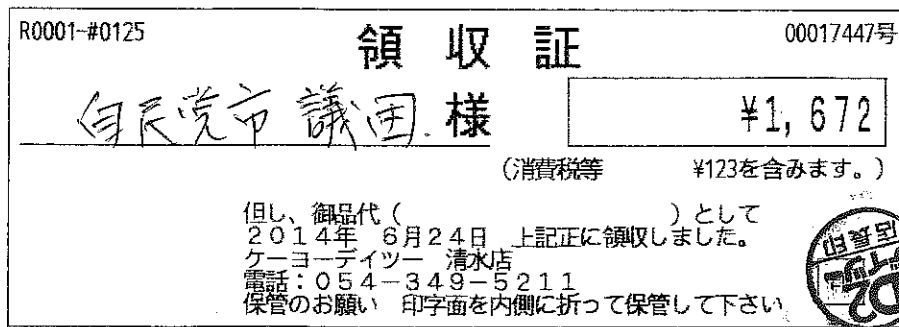 R0001-#0125
領収証
00017447号
自民党市議団 様
¥1,672
(消費税等 ¥123を含みます。)
但し、御品代( )として
2014年 6月24日 上記正に領収しました。
ケーヨーデイツー 清水店
電話:054-349-5211
保管のお願い 印字面を内側に折って保管して下さい
店長印
D2